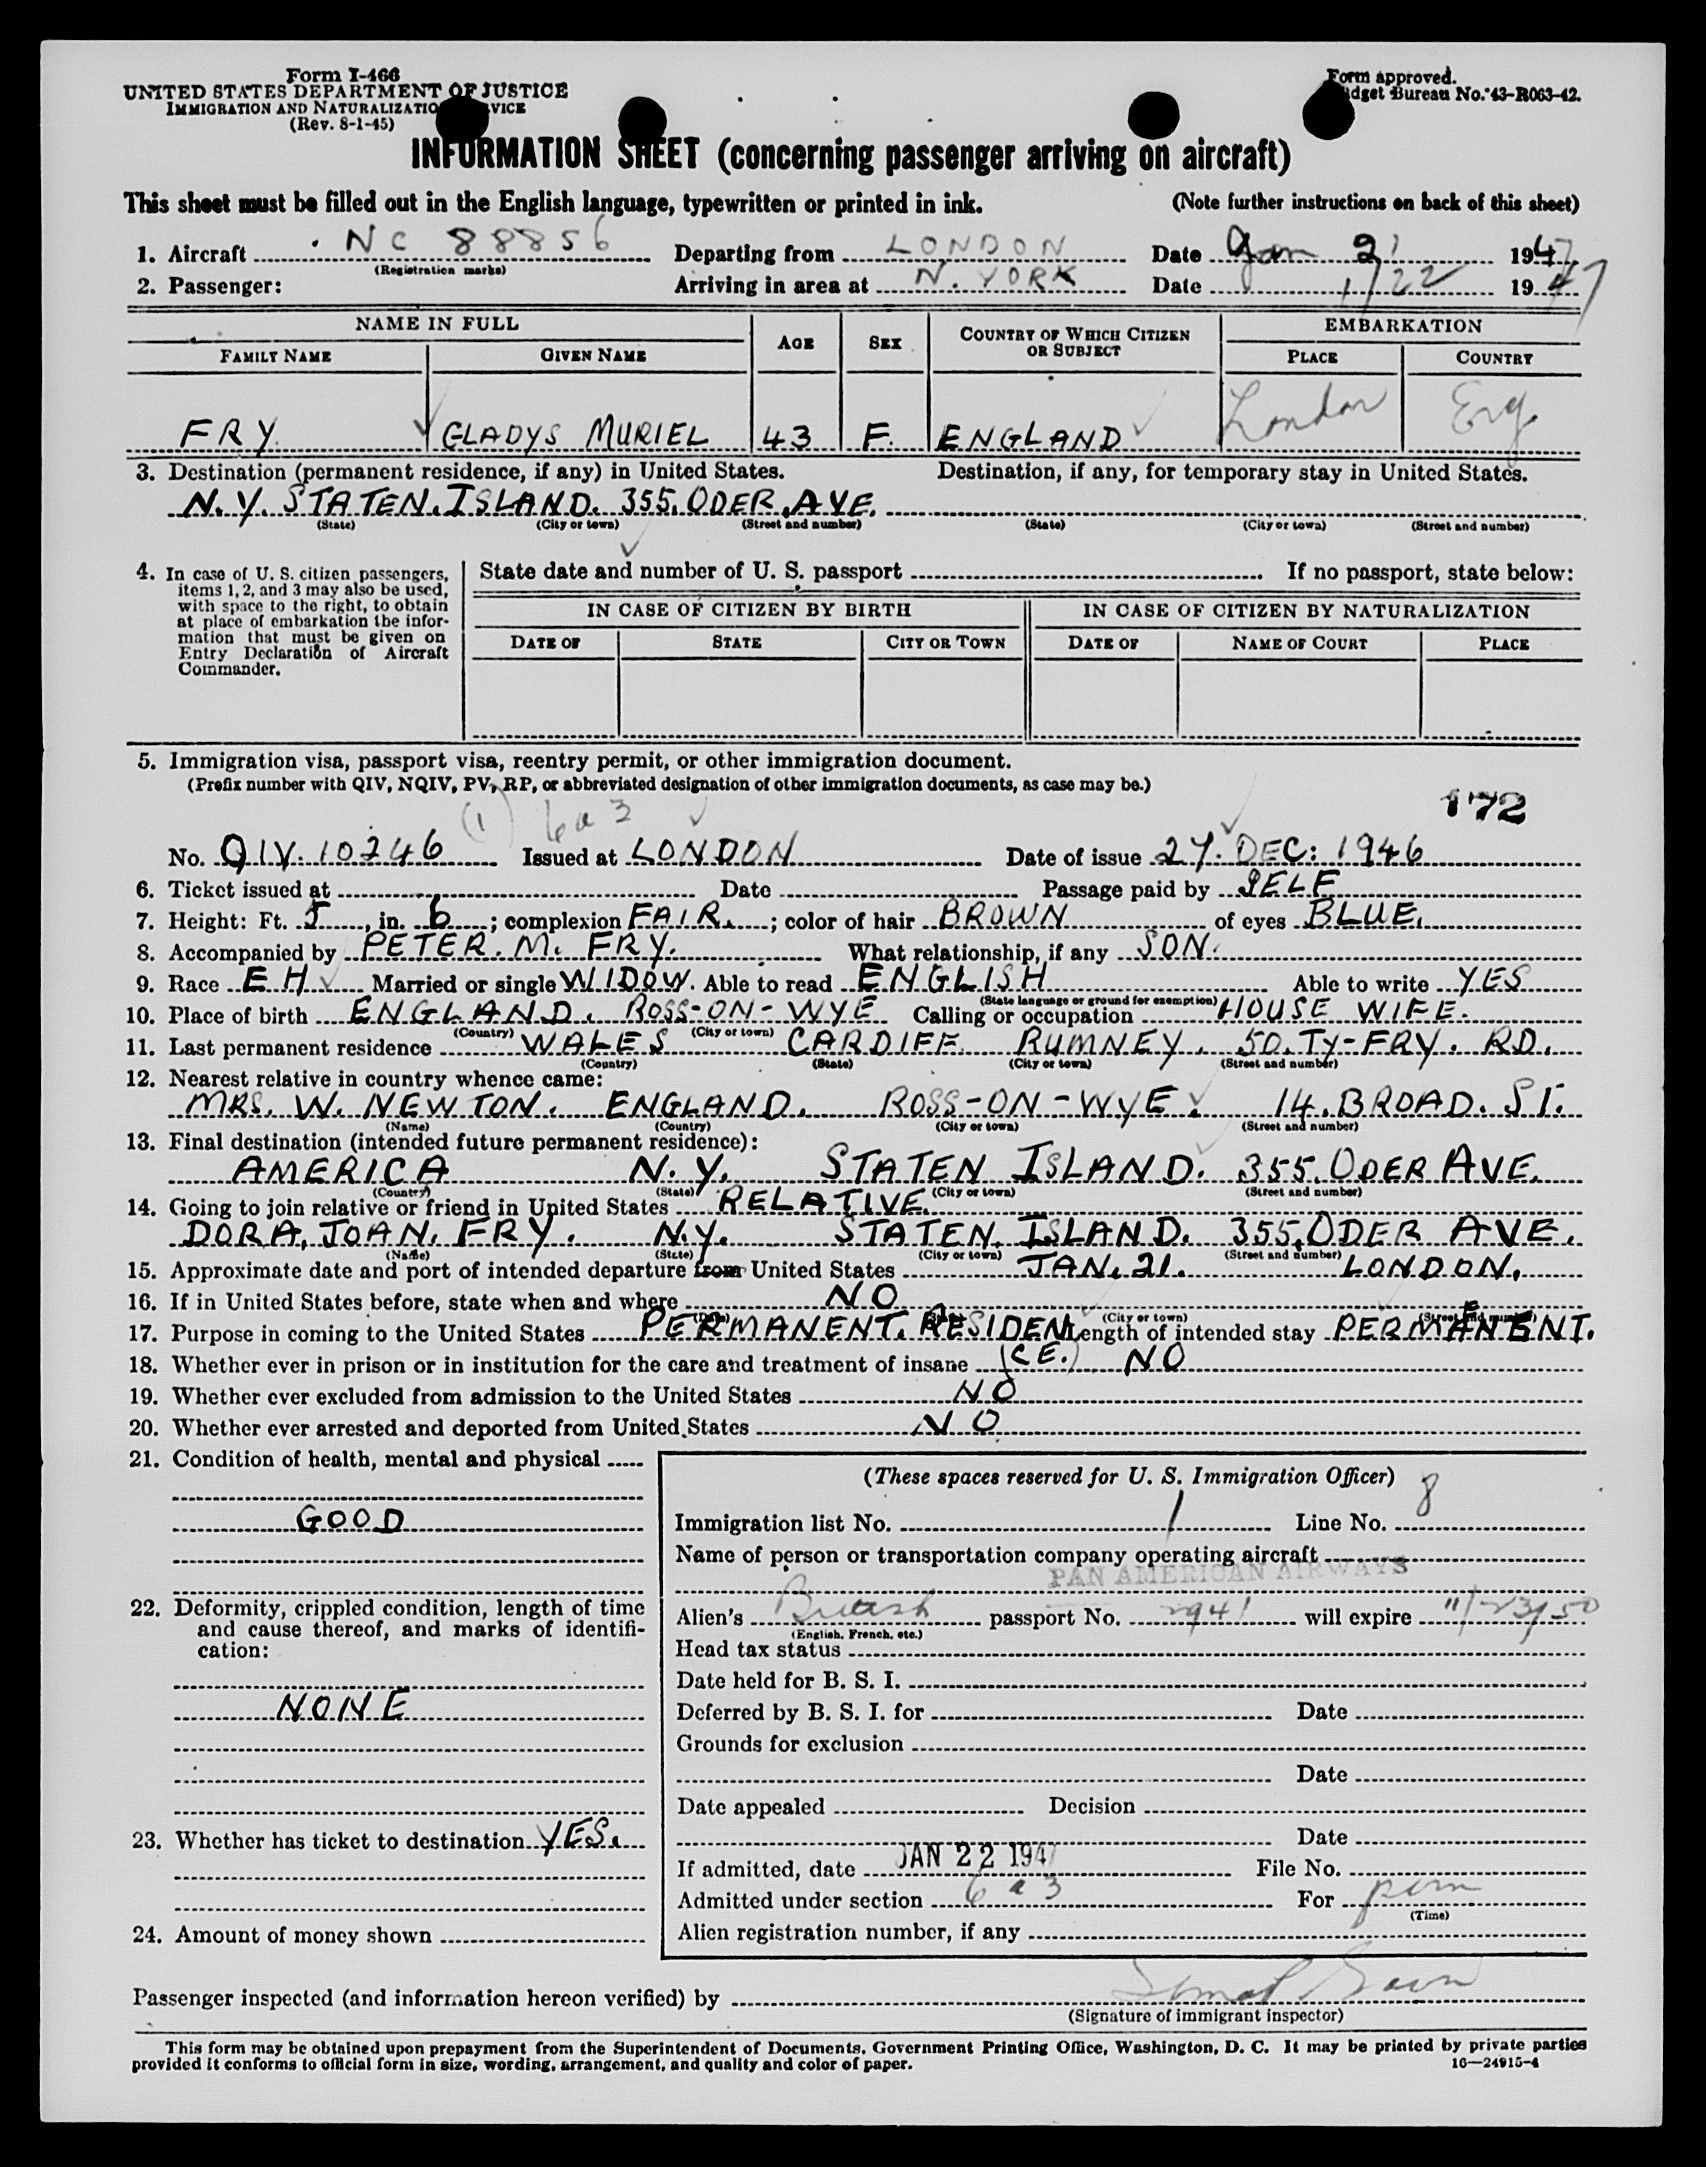 Form I-466
UNITED STATES DEPARTMENT OF JUSTICE
IMMIGRATION AND NATURALIZATION SERVICE
(Rev. 8-1-45)
Form approved.
Budget Bureau No. 43-R063-42.
INFORMATION SHEET (concerning passenger arriving on aircraft)
This sheet must be filled out in the English language, typewritten or printed in ink. (Note further instructions on back of this sheet)
1. Aircraft NC 88856 Departing from LONDON Date Jan 21 1947
(Registration marks)
2. Passenger: Arriving in area at N. YORK Date 1/22 1947
NAME IN FULL AGE SEX COUNTRY OF WHICH CITIZEN OR SUBJECT EMBARKATION
FAMILY NAME GIVEN NAME PLACE COUNTRY
FRY GLADYS MURIEL 43 F. ENGLAND London Eng.
3. Destination (permanent residence, if any) in United States. Destination, if any, for temporary stay in United States.
N.Y. STATEN. ISLAND. 355. ODER. AVE.
(State) (City or town) (Street and number) (State) (City or town) (Street and number)
4. In case of U. S. citizen passengers, items 1, 2, and 3 may also be used, with space to the right, to obtain at place of embarkation the information that must be given on Entry Declaration of Aircraft Commander.
State date and number of U. S. passport If no passport, state below:
IN CASE OF CITIZEN BY BIRTH IN CASE OF CITIZEN BY NATURALIZATION
DATE OF STATE CITY OR TOWN DATE OF NAME OF COURT PLACE
5. Immigration visa, passport visa, reentry permit, or other immigration document.
(Prefix number with QIV, NQIV, PV, RP, or abbreviated designation of other immigration documents, as case may be.)
172
(1) 6a3
No. QIV. 10246 Issued at LONDON Date of issue 27. DEC: 1946
6. Ticket issued at Date Passage paid by SELF
7. Height: Ft. 5, in. 6; complexion FAIR.; color of hair BROWN of eyes BLUE.
8. Accompanied by PETER. M. FRY. What relationship, if any SON.
9. Race EH Married or single WIDOW. Able to read ENGLISH Able to write YES
(State language or ground for exemption)
10. Place of birth ENGLAND. ROSS-ON-WYE Calling or occupation HOUSE WIFE.
(Country) (City or town)
11. Last permanent residence WALES CARDIFF. RUMNEY. 50. TY-FRY. RD.
(Country) (State) (City or town) (Street and number)
12. Nearest relative in country whence came:
MRS. W. NEWTON. ENGLAND. ROSS-ON-WYE. 14. BROAD. ST.
(Name) (Country) (City or town) (Street and number)
13. Final destination (intended future permanent residence):
AMERICA N.Y. STATEN ISLAND. 355. ODER AVE.
(Country) (State) (City or town) (Street and number)
14. Going to join relative or friend in United States RELATIVE.
DORA, JOAN. FRY. N.Y. STATEN. ISLAND. 355, ODER AVE.
(Name) (State) (City or town) (Street and number)
15. Approximate date and port of intended departure from United States JAN. 21. LONDON.
16. If in United States before, state when and where NO
(City or town)
17. Purpose in coming to the United States PERMANENT. RESIDENCE Length of intended stay PERMANENT.
18. Whether ever in prison or in institution for the care and treatment of insane (CE.) NO
19. Whether ever excluded from admission to the United States NO
20. Whether ever arrested and deported from United States NO
21. Condition of health, mental and physical
GOOD
22. Deformity, crippled condition, length of time and cause thereof, and marks of identification:
NONE
23. Whether has ticket to destination YES.
24. Amount of money shown
(These spaces reserved for U. S. Immigration Officer)
Immigration list No. 1 Line No. 8
Name of person or transportation company operating aircraft
PAN AMERICAN AIRWAYS
Alien's British passport No. 2941 will expire 11/23/50
(English, French, etc.)
Head tax status
Date held for B. S. I.
Deferred by B. S. I. for Date
Grounds for exclusion
Date
Date appealed Decision
Date
If admitted, date JAN 22 1947 File No.
Admitted under section 6a3 For perm
(Time)
Alien registration number, if any
Passenger inspected (and information hereon verified) by
(Signature of immigrant inspector)
This form may be obtained upon prepayment from the Superintendent of Documents, Government Printing Office, Washington, D. C. It may be printed by private parties
provided it conforms to official form in size, wording, arrangement, and quality and color of paper. 16—24915-4